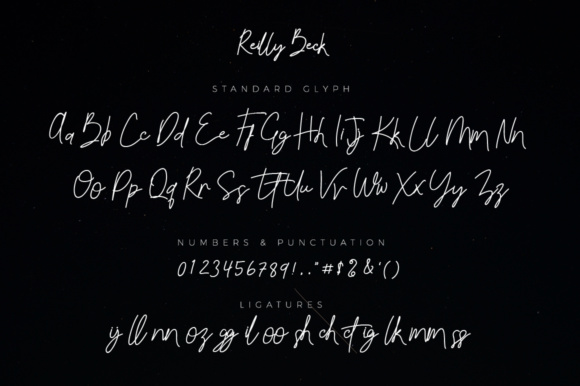 Reilly Beck
STANDARD GLYPH
Aa Bb Cc Dd Ee Ff Gg Hh Ii Jj Kk Ll Mm Nn
Oo Pp Qq Rr Ss Tt Uu Vv Ww Xx Yy Zz
NUMBERS & PUNCTUATION
0123456789!..."#$?&'()
LIGATURES
ij ll nn oz gg il oo sh ch ct ig lk mm ss